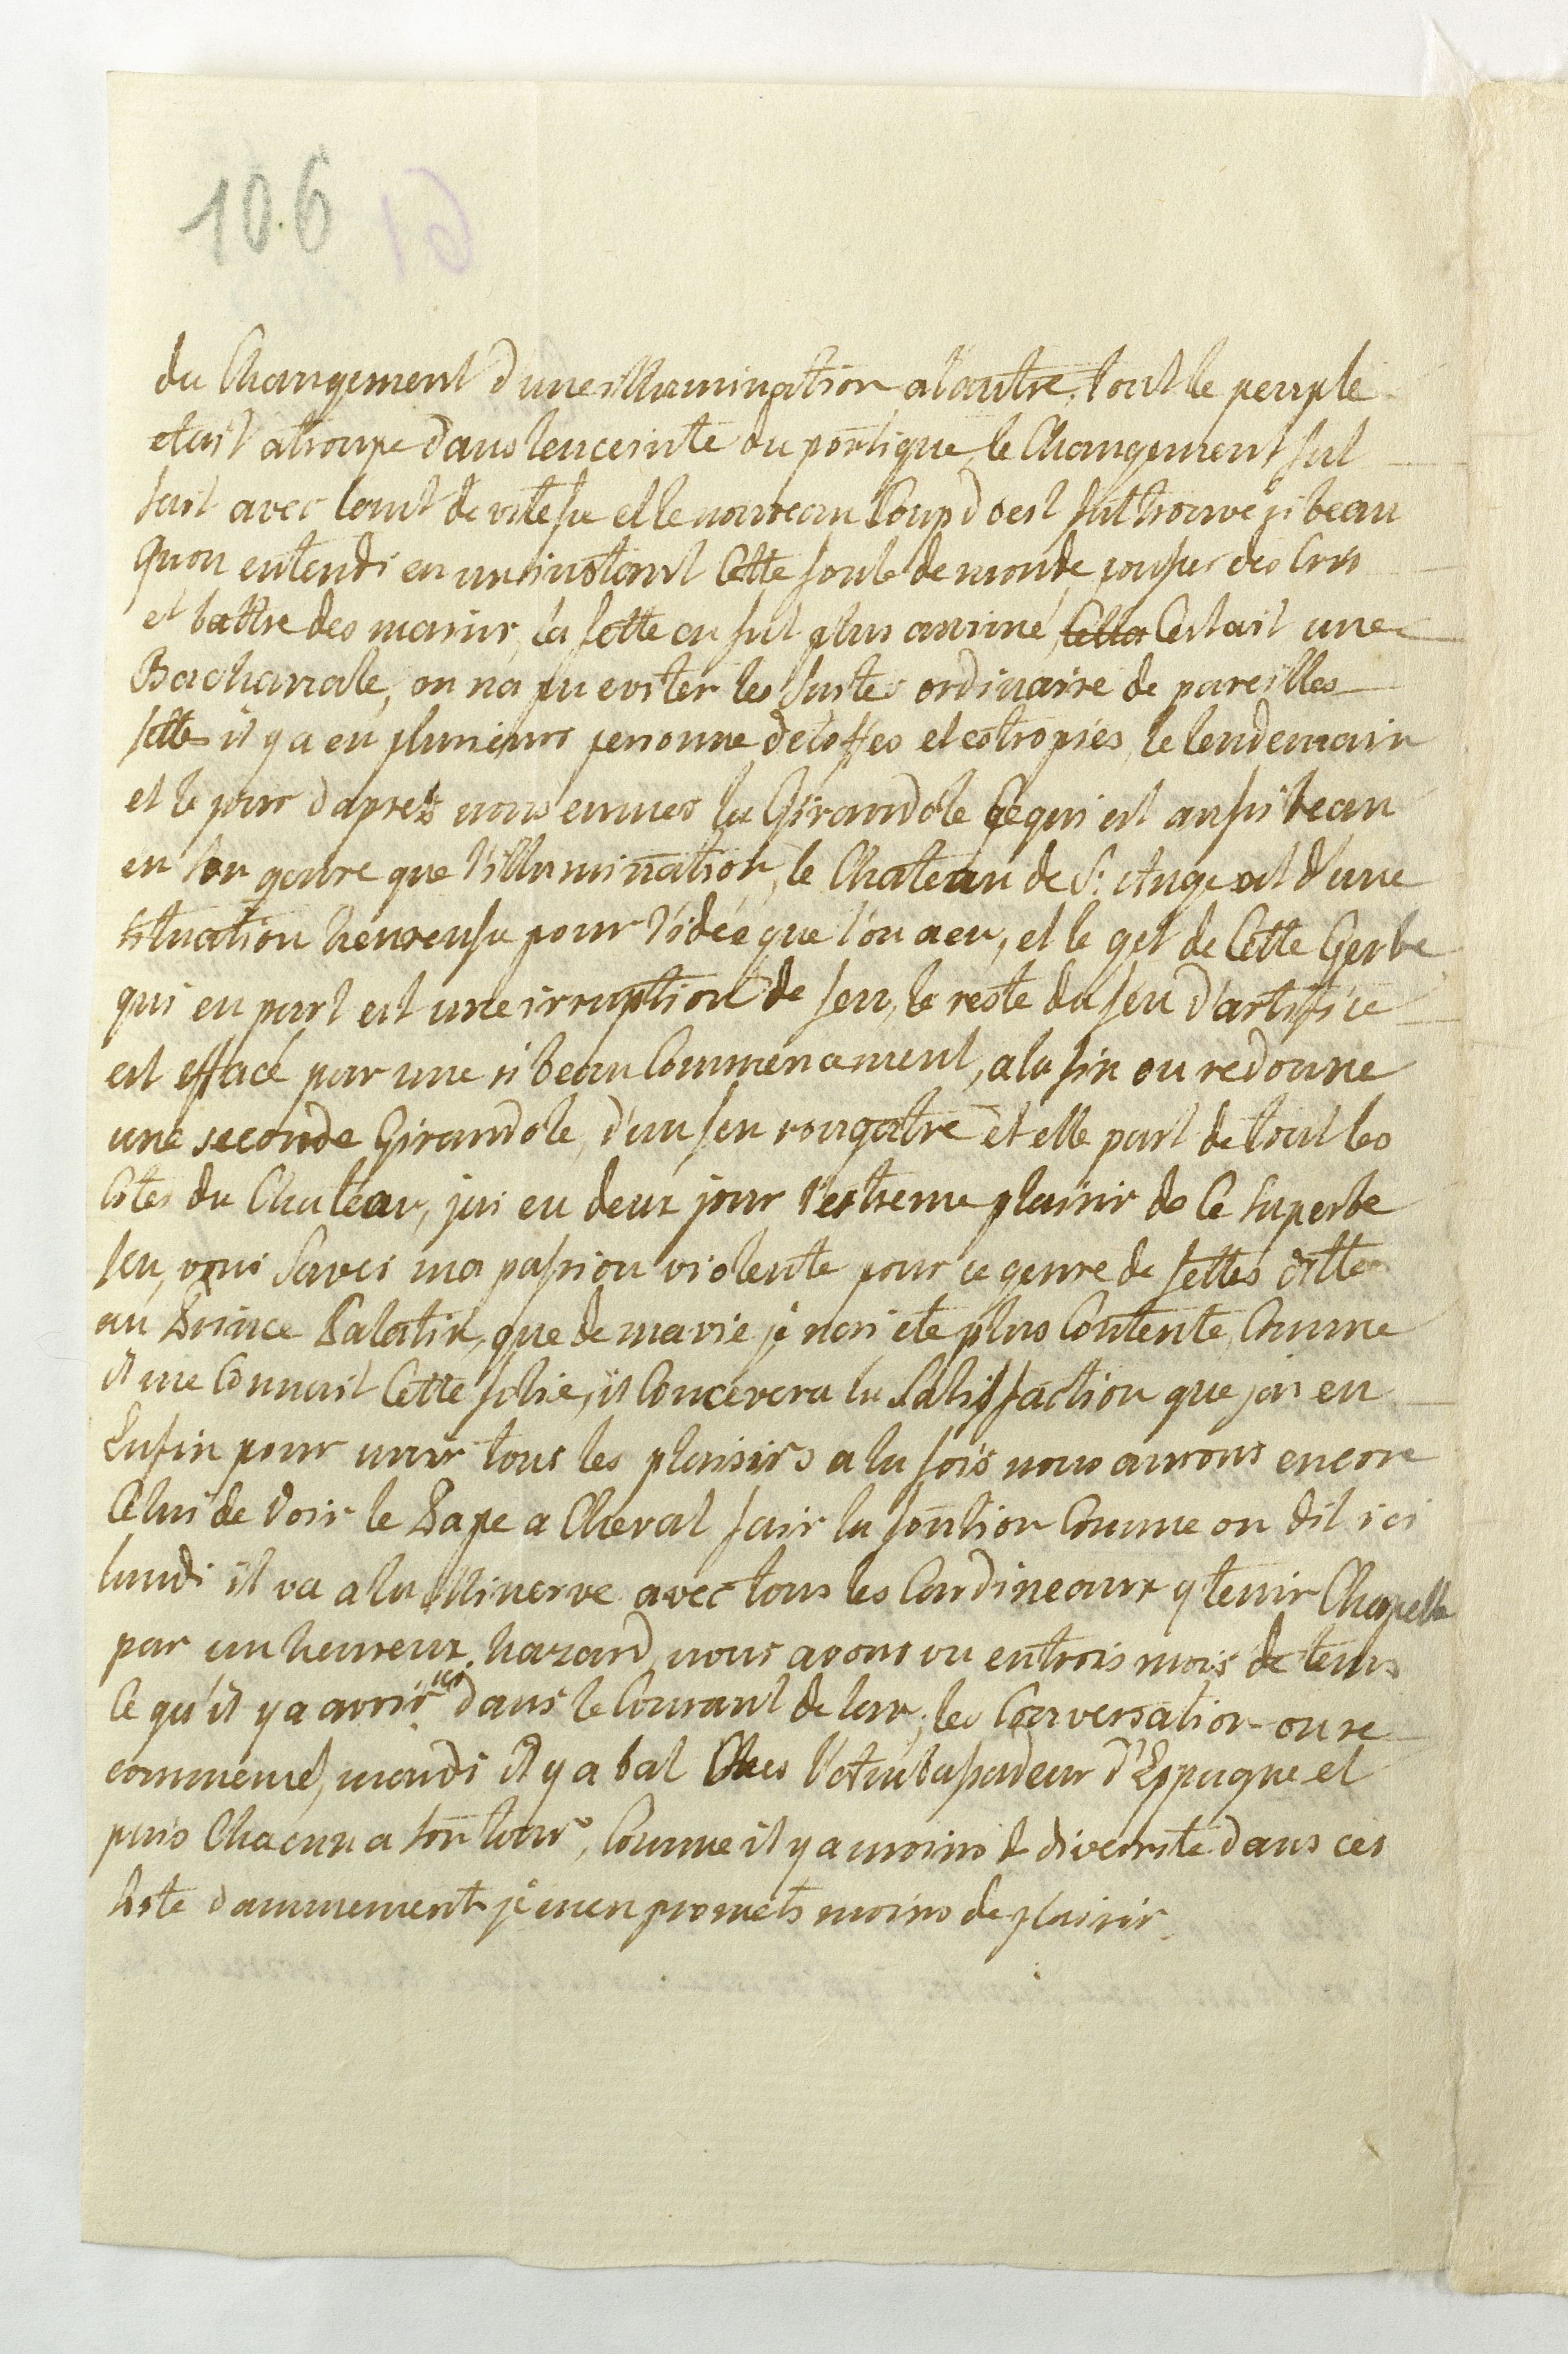 106 61
du Changement d'une illumination alautre. tout le peuple
etait atroupe dans lenceinte du portique, le Changement fut
fait avec tant de vitesse et le nouveau Coup d'oeil fut trouvé si beau
Quon entendi en un instant Cette foule de monde pousser des Cris
et battre des mains, la fette en fut plus animé, Cestait une
Bachanale, on na pu eviter les suites ordinaire de pareilles
fette il y a eu plusieurs personne detoffes et estropiés, le lendemain
et le jour d'apres nous eumes la Girandole Ce qui est aussi beau
en son genre que l'illumination, le Chateau de St. Ange est d'une
situation heureuse pour l'idée que l'on a eu, et le get de Cette Gerbe
qui en part est une irruption de feu, le reste du feu d'artifice
est effacé par une si beau Commencament, a la fin on redonne
une seconde Girandole, d'un feu rougatre et elle part de tout les
Cotes du Chateau, jai eu deux jour l'extreme plaisir de Ce superbe
feu, vous Saves ma passion violente pour ce genre de fettes dittes
au Prince Palatin, que de mavie je nai ete plus Contente, Comme
il me Connait Cette folie, il Concevera la Satisffaction que jai eu
Enfin pour unir tous les plaisirs a la fois nous aurons encore
Celui de Voir le Pape a Cheval fair la fontion Comme on dit ici
lundi il va a la Minerve avec tous les Cardineaux y tenir Chapelle
par un heureux hazard, nous avons vu en trois mois de tems
Ce qu'il y a avoir ici dans le Courant de lan, les Conversation on re
commence, mardi il y a bal Ches l'Ambassadeur d'Espagne et
puis Chacun a son tour, Comme il y a moins de diversité dans ces
sorte d'amusement je men promets moins de plaisir.